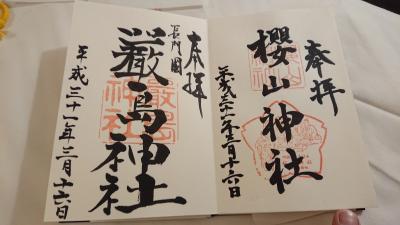 奉拝
櫻山神社
平成三十一年三月十六日
奉拝
長門國
嚴島神社
平成三十一年三月十六日
嚴島神社